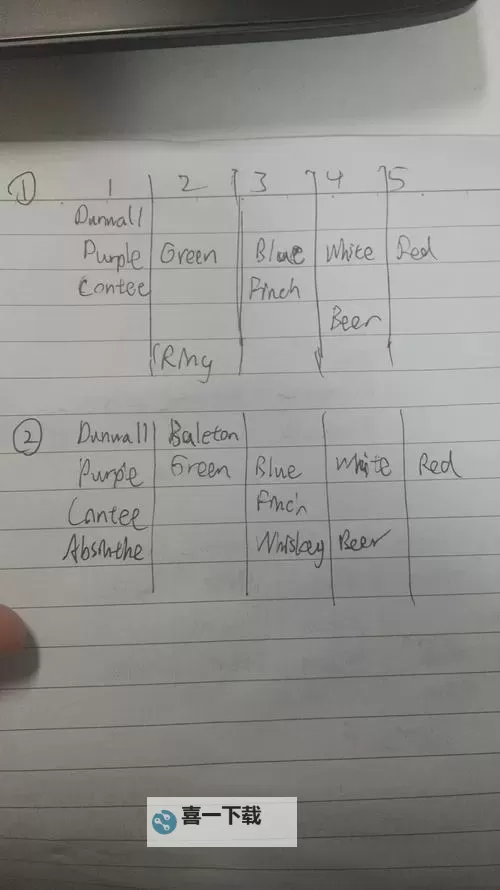 ① 1 2 3 4 5
Dunwall
Purple Green Blue White Red
Contee Finch
Beer
Ring
② Dunwall Baleton
Purple Green Blue White Red
Contee Finch
Absinthe Whiskey Beer
喜一下载